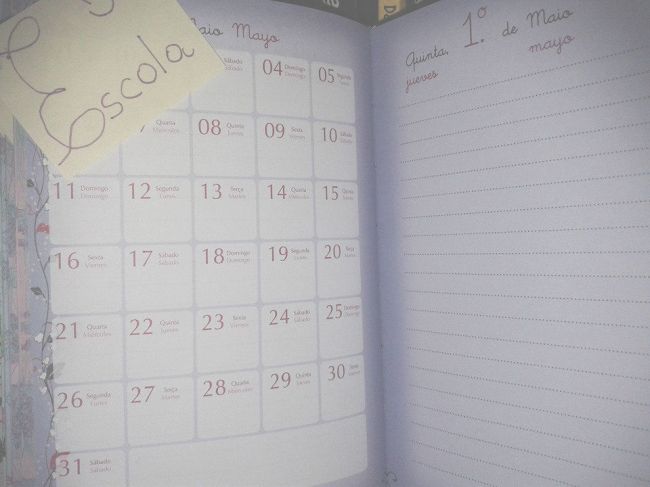 Escola
Maio Mayo
Sábado
Sábado
04 Domingo
Domingo
05 Segunda
Quarta
Miércoles
08 Quinta
Jueves
09 Sexta
Viernes
10 Sábado
Sábado
11 Domingo
Domingo
12 Segunda
Lunes
13 Terça
Martes
14 Quarta
Miércoles
15 Quinta
Jueves
16 Sexta
Viernes
17 Sábado
Sábado
18 Domingo
Domingo
19 Segunda
Lunes
20 Terça
Martes
21 Quarta
Miércoles
22 Quinta
Jueves
23 Sexta
Viernes
24 Sábado
Sábado
25 Domingo
Domingo
26 Segunda
Lunes
27 Terça
Martes
28 Quarta
Miércoles
29 Quinta
Jueves
30 Sexta
Viernes
31 Sábado
Sábado
Quinta, 1.º de Maio
jueves mayo